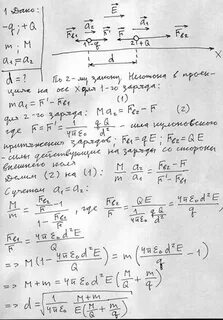 1 Дано:
-q; +Q
m; M
a₁ = a₂
d = ?
E
a₁ a₂
Fвн1 F F Fвн2
1 -q 2 +Q
d X
По 2-му закону Ньютона в проекциях на ось X для 1-го заряда:
m a₁ = F - Fвн1 (1)
для 2-го заряда:
M a₂ = Fвн2 - F (2)
где F = F = qQ / 4πε₀d² – сила кулоновского
притяжения зарядов; Fвн1 = qE; Fвн2 = QE
– силы действующие на заряды со стороны
внешнего поля
Делим (2) на (1): M/m a₂/a₁ = (Fвн2 - F)/(F - Fвн1)
С учетом a₁ = a₂:
M/m = (Fвн2/F - 1)/(1 - Fвн1/F), где Fвн2/F = QE/(1/4πε₀ qQ/d²) = 4πε₀d²E/q
Fвн1/F = 4πε₀d²E/Q
=> M(1 - 4πε₀d²E/Q) = m(4πε₀d²E/q - 1)
=> M + m = 4πε₀d²E(M/Q + m/q)
=> d = √(1/4πε₀ (M+m)/(E(M/Q + m/q)))